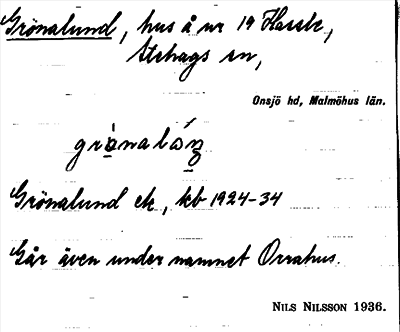 Grönalund, hus å nr 19 Hassle,
Stehags sn,
Onsjö hd, Malmöhus län.
Grönalund ek, kb 1924-34
Går även under namnet Orrahus.
NILS NILSSON 1936.